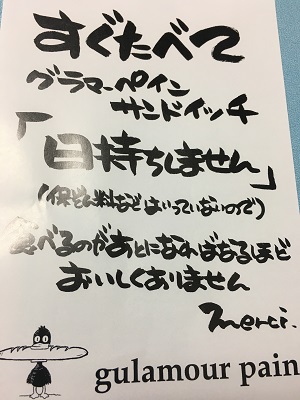 すぐたべて
グラマーペイン
サンドイッチ
「日持ちしません」
(保存料などはいっていないので)
食べるのがあとになればなるほど
おいしくありません
merci.
gulamour pain